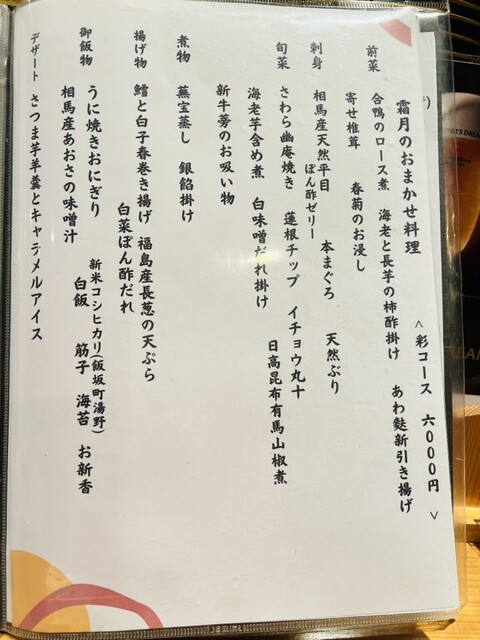 霜月のおまかせ料理 <彩コース 六〇〇〇円>
前菜 合鴨のロース煮 海老と長芋の柿酢掛け あわ麩新引き揚げ
寄せ椎茸 春菊のお浸し
刺身 相馬産天然平目 本まぐろ 天然ぶり
ぽん酢ゼリー
旬菜 さわら幽庵焼き 蓮根チップ イチョウ丸十
海老芋含め煮 白味噌だれ掛け 日高昆布有馬山椒煮
新牛蒡のお吸い物
煮物 蕪宝蒸し 銀餡掛け
揚げ物 鱈と白子春巻き揚げ 福島産長葱の天ぷら
白菜ぽん酢だれ
御飯物 うに焼きおにぎり 新米コシヒカリ(飯坂町湯野)
相馬産あおさの味噌汁 白飯 筋子 海苔 お新香
デザート さつま芋羊羹とキャラメルアイス